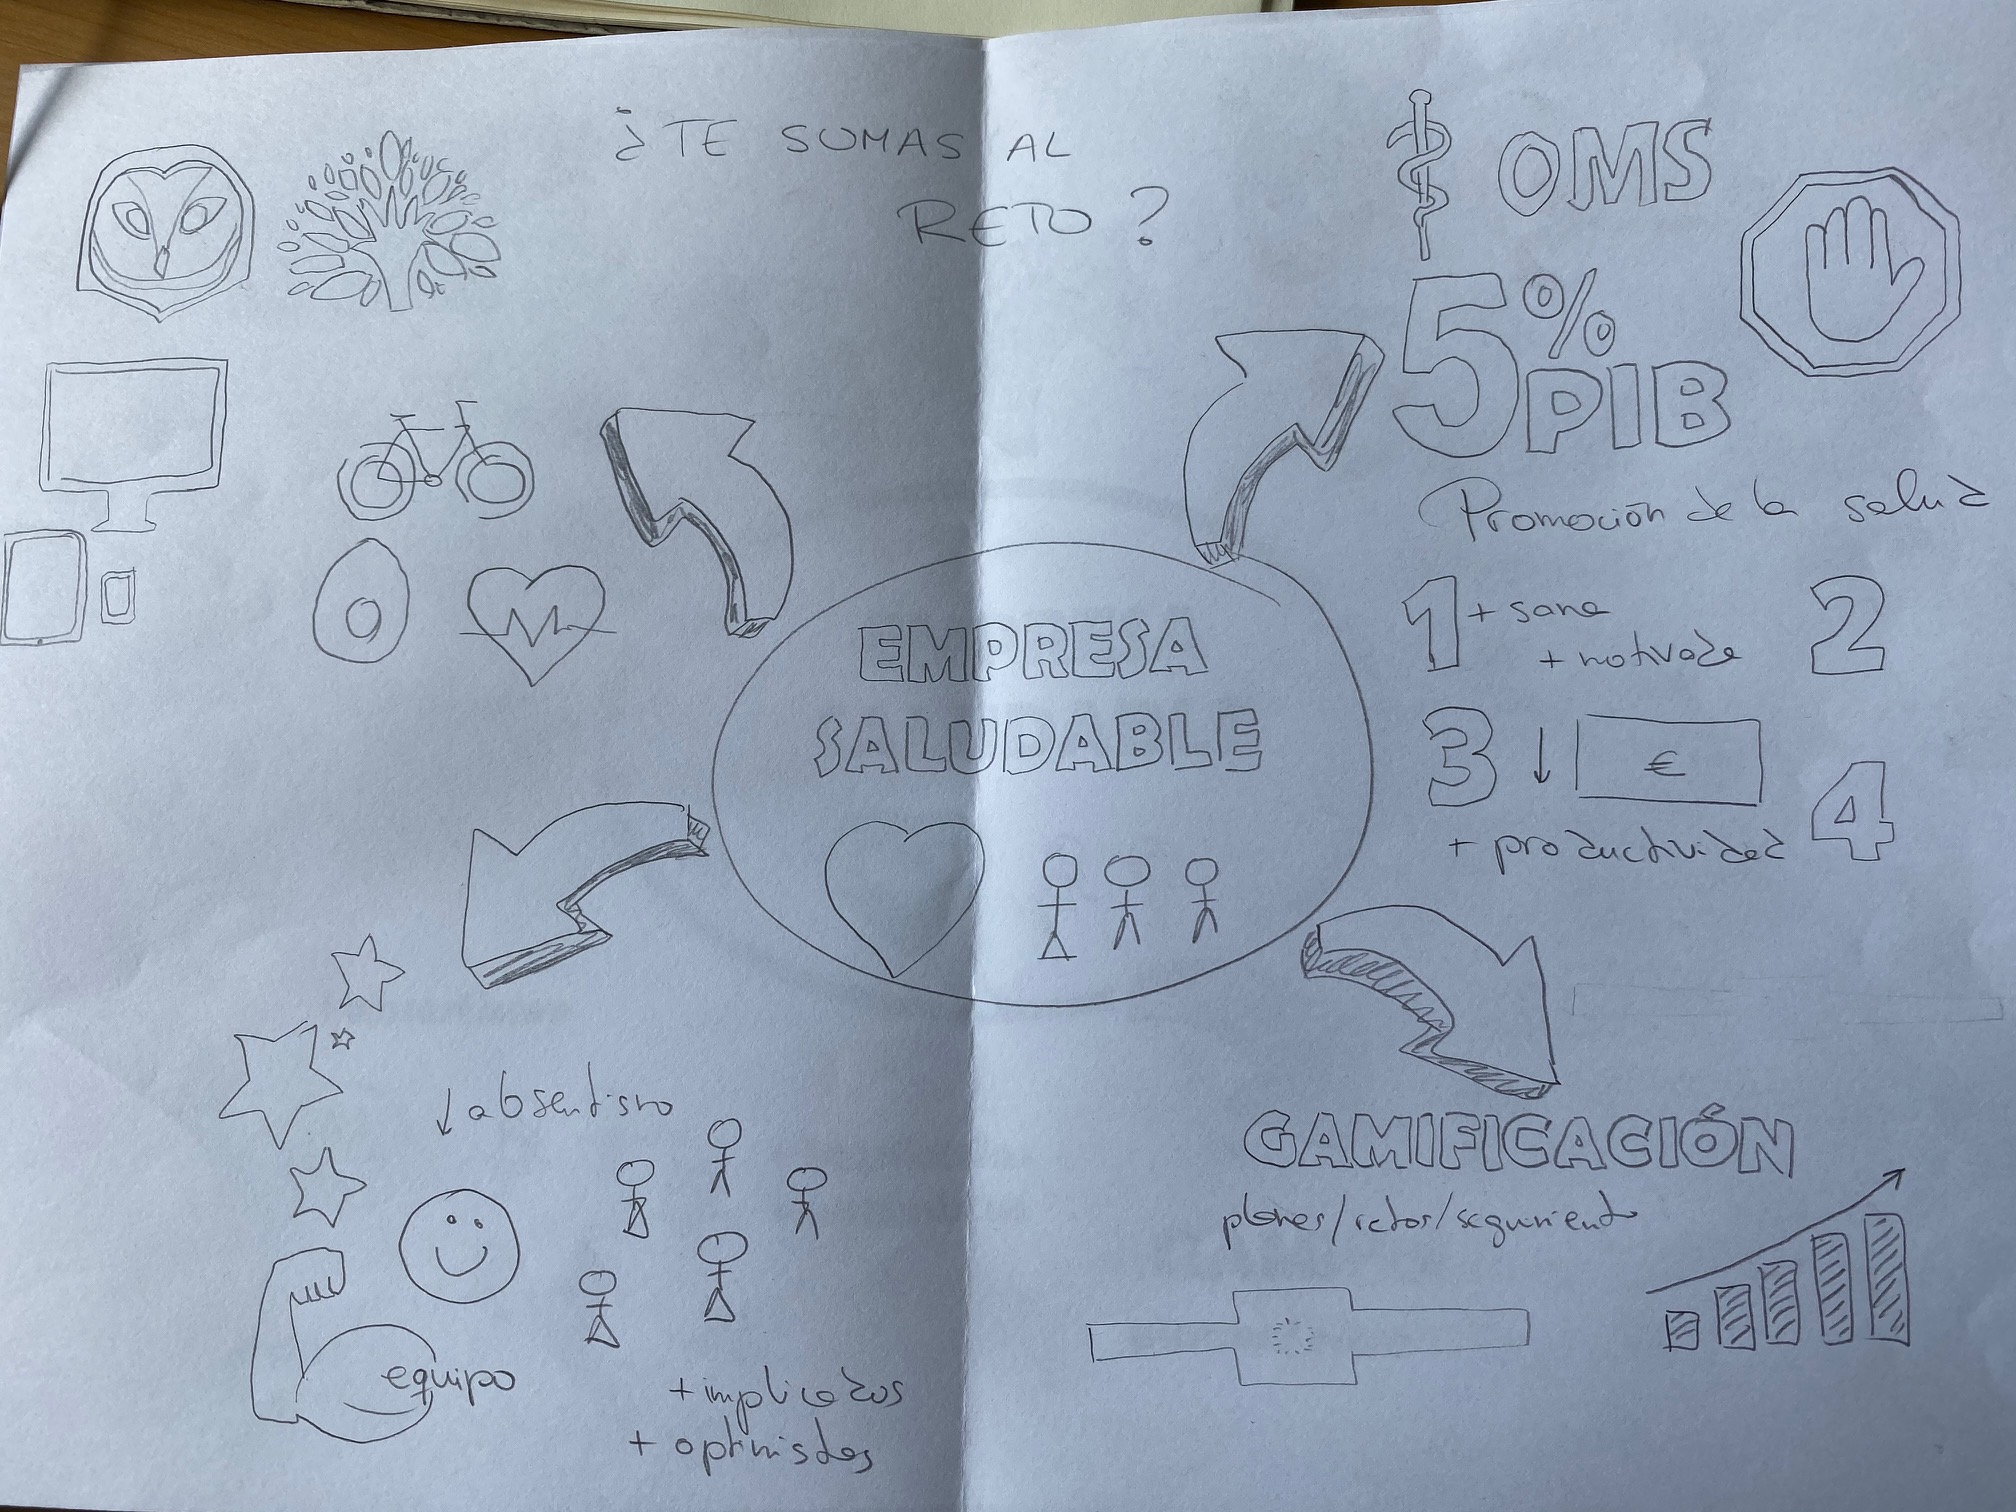 ¿TE SUMAS AL
RETO?
OMS
5%
PIB
Promoción de la salud
1 + sana
+ motivada
2
3 ↓ €
+ productividad
4
EMPRESA
SALUDABLE
↓ absentismo
equipo
+ implicados
+ optimistas
GAMIFICACIÓN
planes/retos/seguimiento